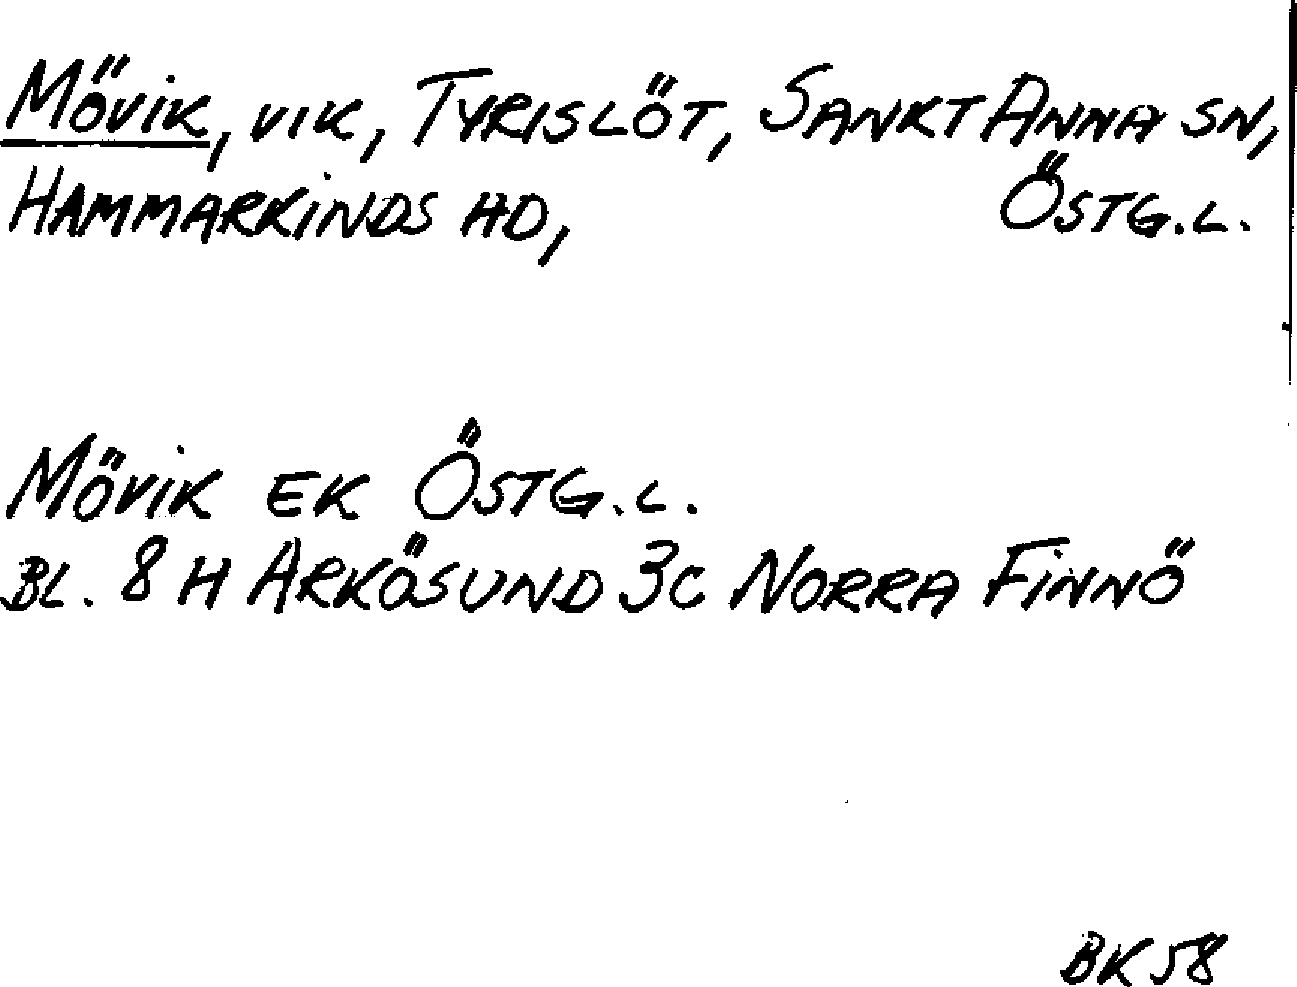 Mövik, vik, Tyrislöt, Sankt Anna sn,
Hammarkinds hd, Östg.l.
Mövik EK Östg.l.
Bl. 8 H Arkösund 3c Norra Finnö
BK 58